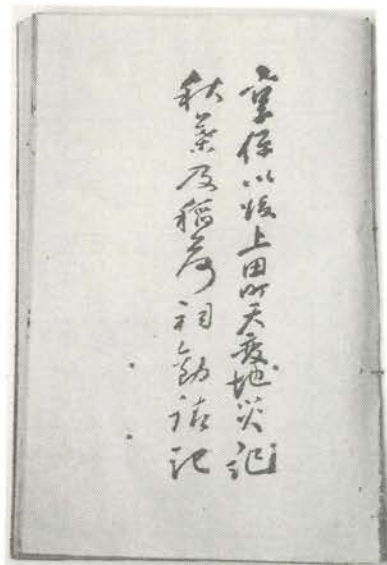 享保以後上田町天変地災記
秋葉及稲荷祠勧請記